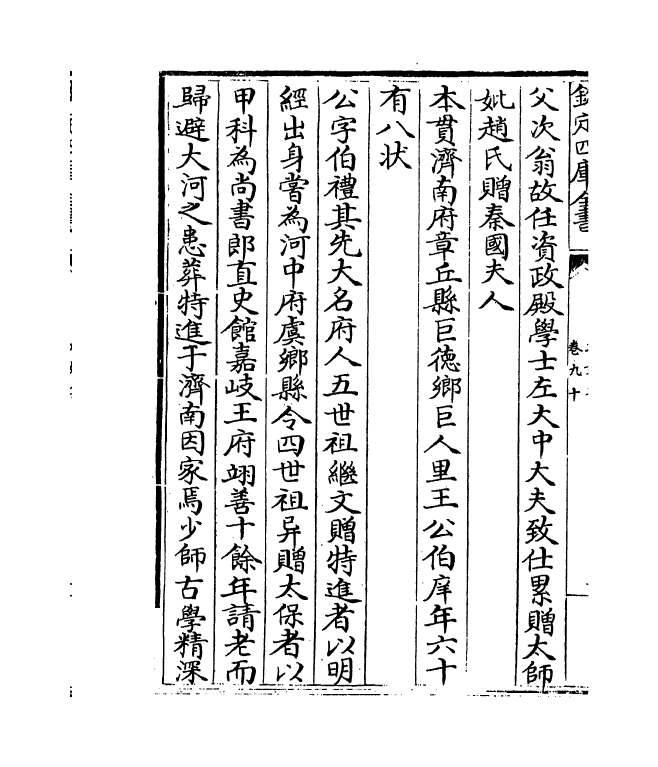 欽定四庫全書
卷九十
父次翁故任資政殿學士左大中大夫致仕累贈太師
妣趙氏贈秦國夫人
本貫濟南府章丘縣巨德鄉巨人里王公伯庠年六十
有八状
公字伯禮其先大名府人五世祖繼文贈特進者以明
經出身嘗為河中府虞鄉縣令四世祖异贈太保者以
甲科為尚書郎直史館嘉岐王府翊善十餘年請老而
歸避大河之患葬特進于濟南因家焉少師古學精深